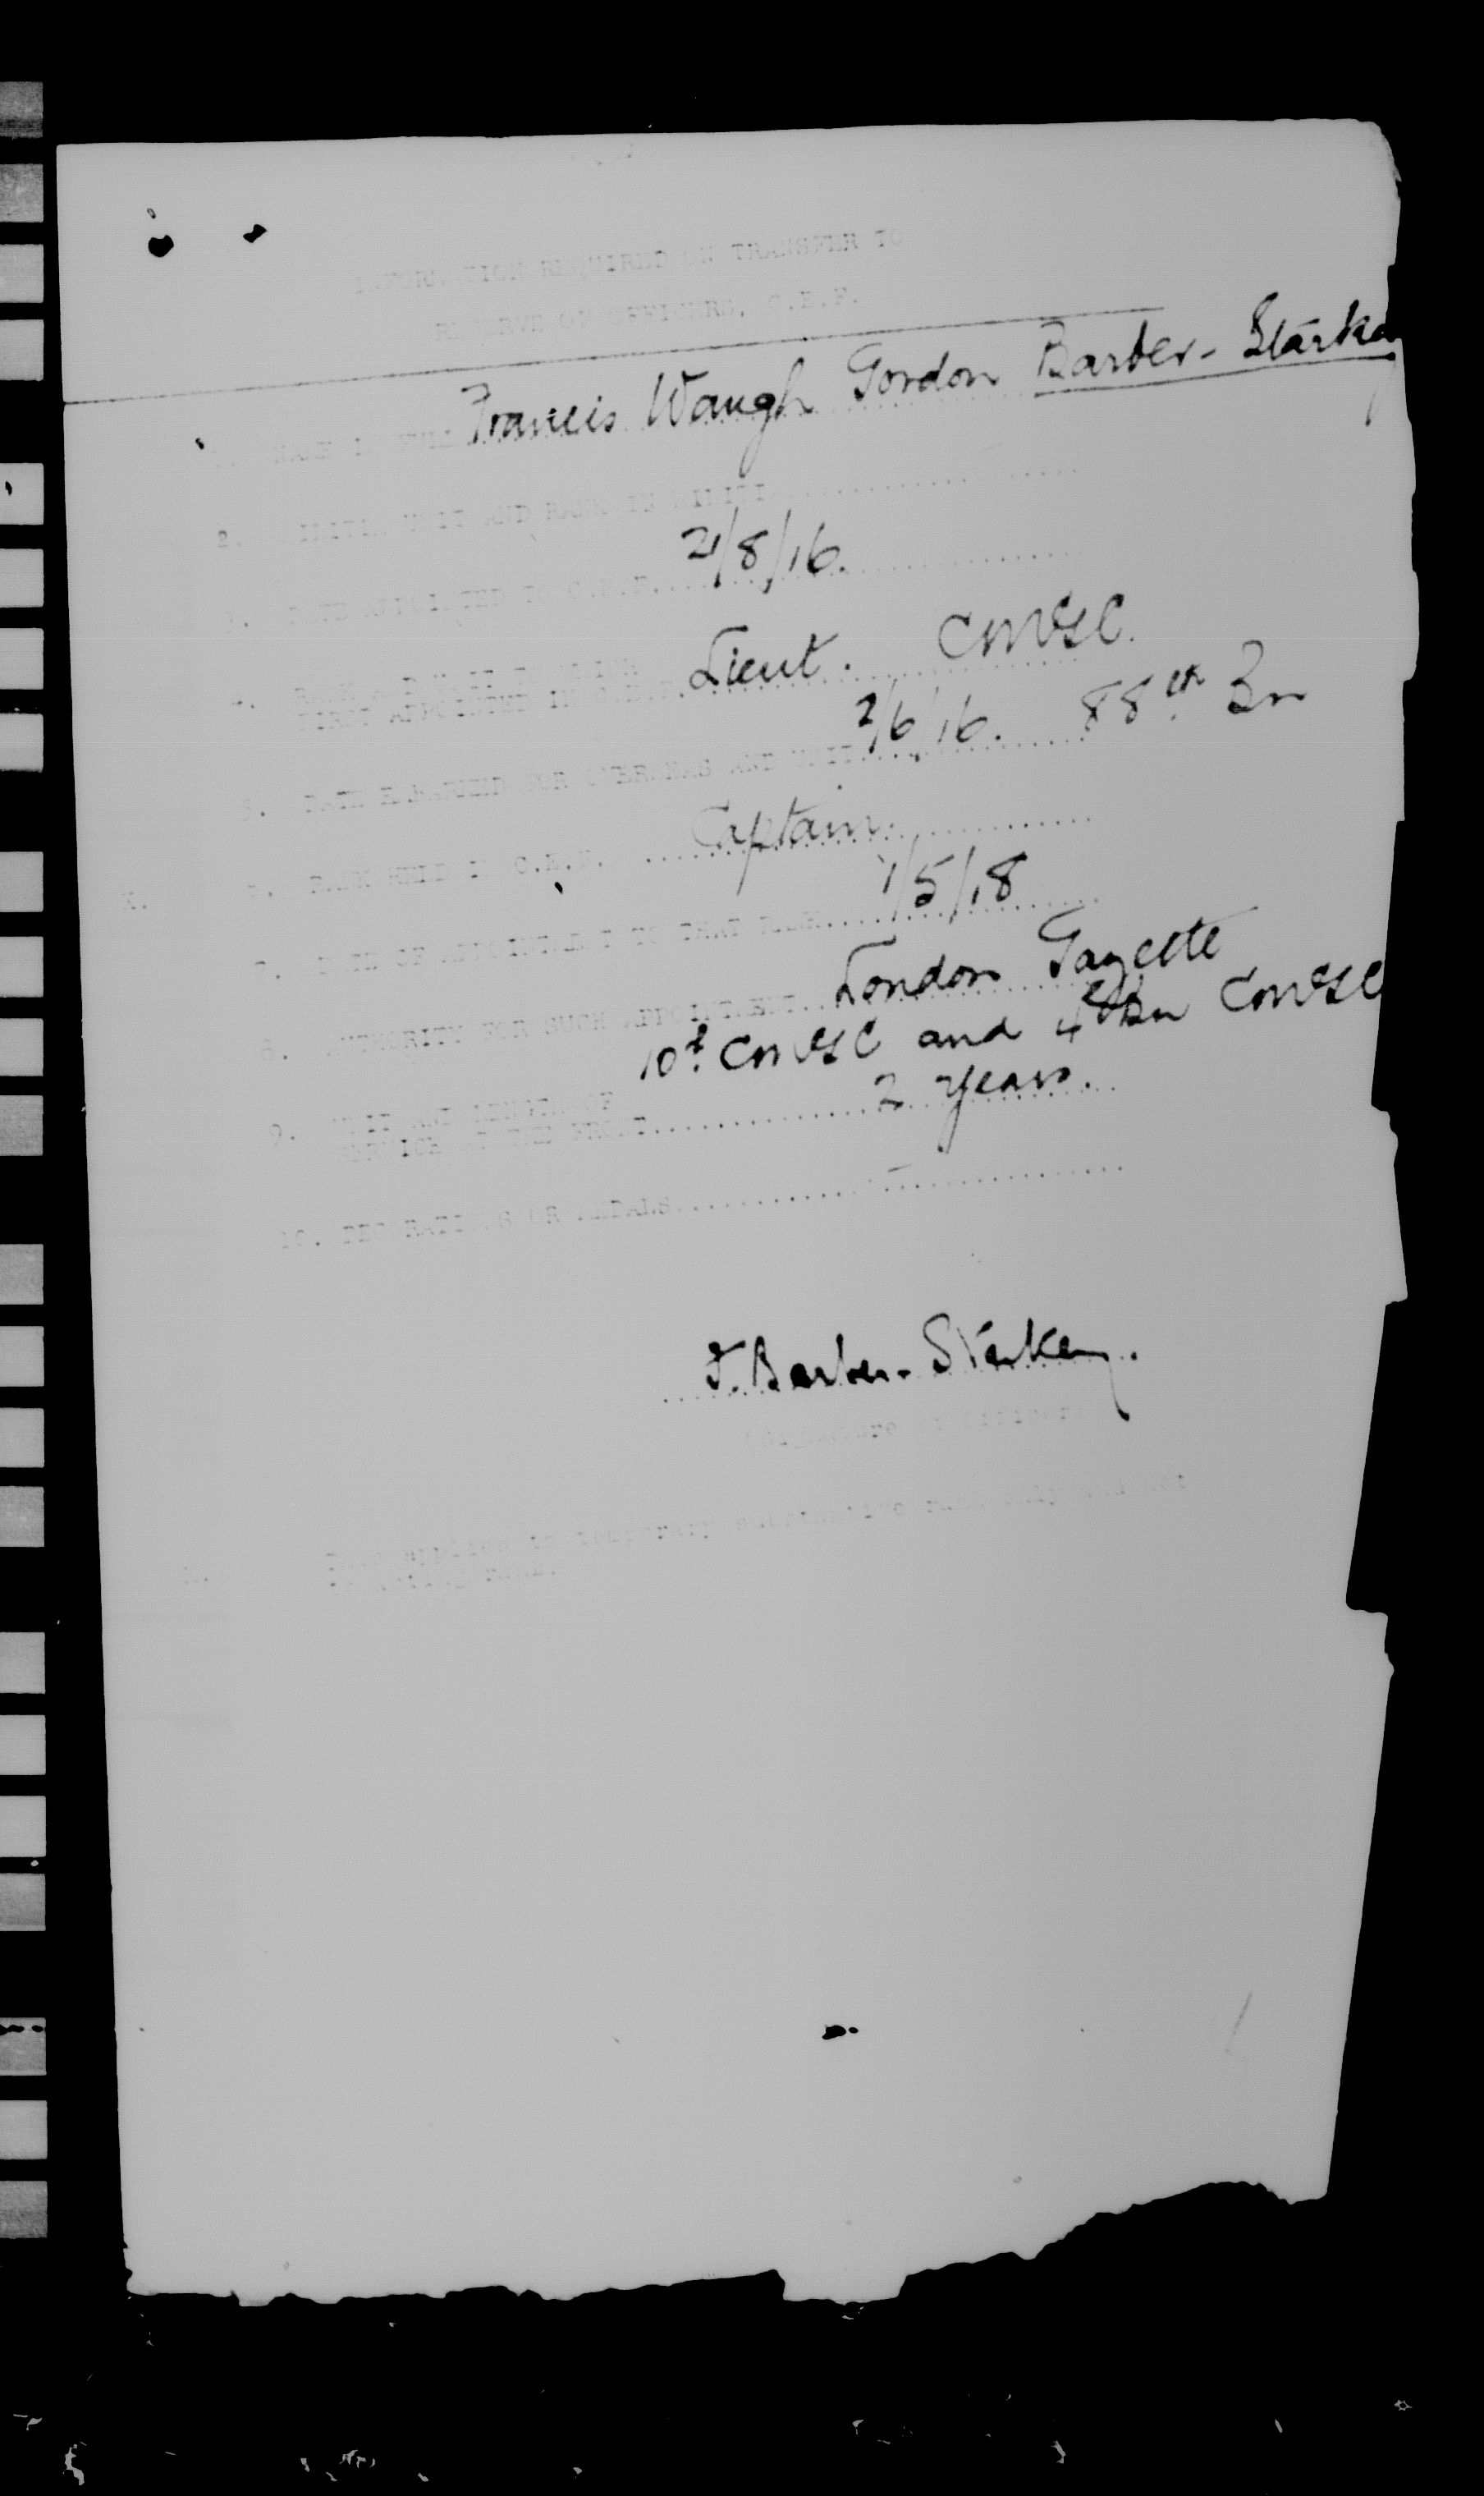 INFORMATION REQUIRED ON TRANSFER TO
RESERVE OF OFFICERS, C.E.F.
1. NAME IN FULL Francis Waugh Gordon Barber-Starkey
2. MILITIA UNIT AND RANK IN MILITIA....................
3. DATE APPOINTED TO C.E.F. 21/8/16.
4. RANK AND UNIT
FIRST APPOINTED IN C.E.F. Lieut. CMGC.
5. DATE EMBARKED FOR OVERSEAS AND UNIT 2/6/16. 88th Bn
X. 6. RANK HELD IN C.E.F. Captain.
7. DATE OF APPOINTMENT TO THAT RANK 1/5/18
8. AUTHORITY FOR SUCH APPOINTMENT London Gazette
10th CMGC and 4th Bn CMGC
9. UNIT AND LENGTH OF
SERVICE AT THE FRONT 2 years.
10. DECORATIONS OR MEDALS.......... – ..........
F. Barber-Starkey.
(Signature of Officer)
X. This applies to temporary substantive rank only and not
to acting rank.